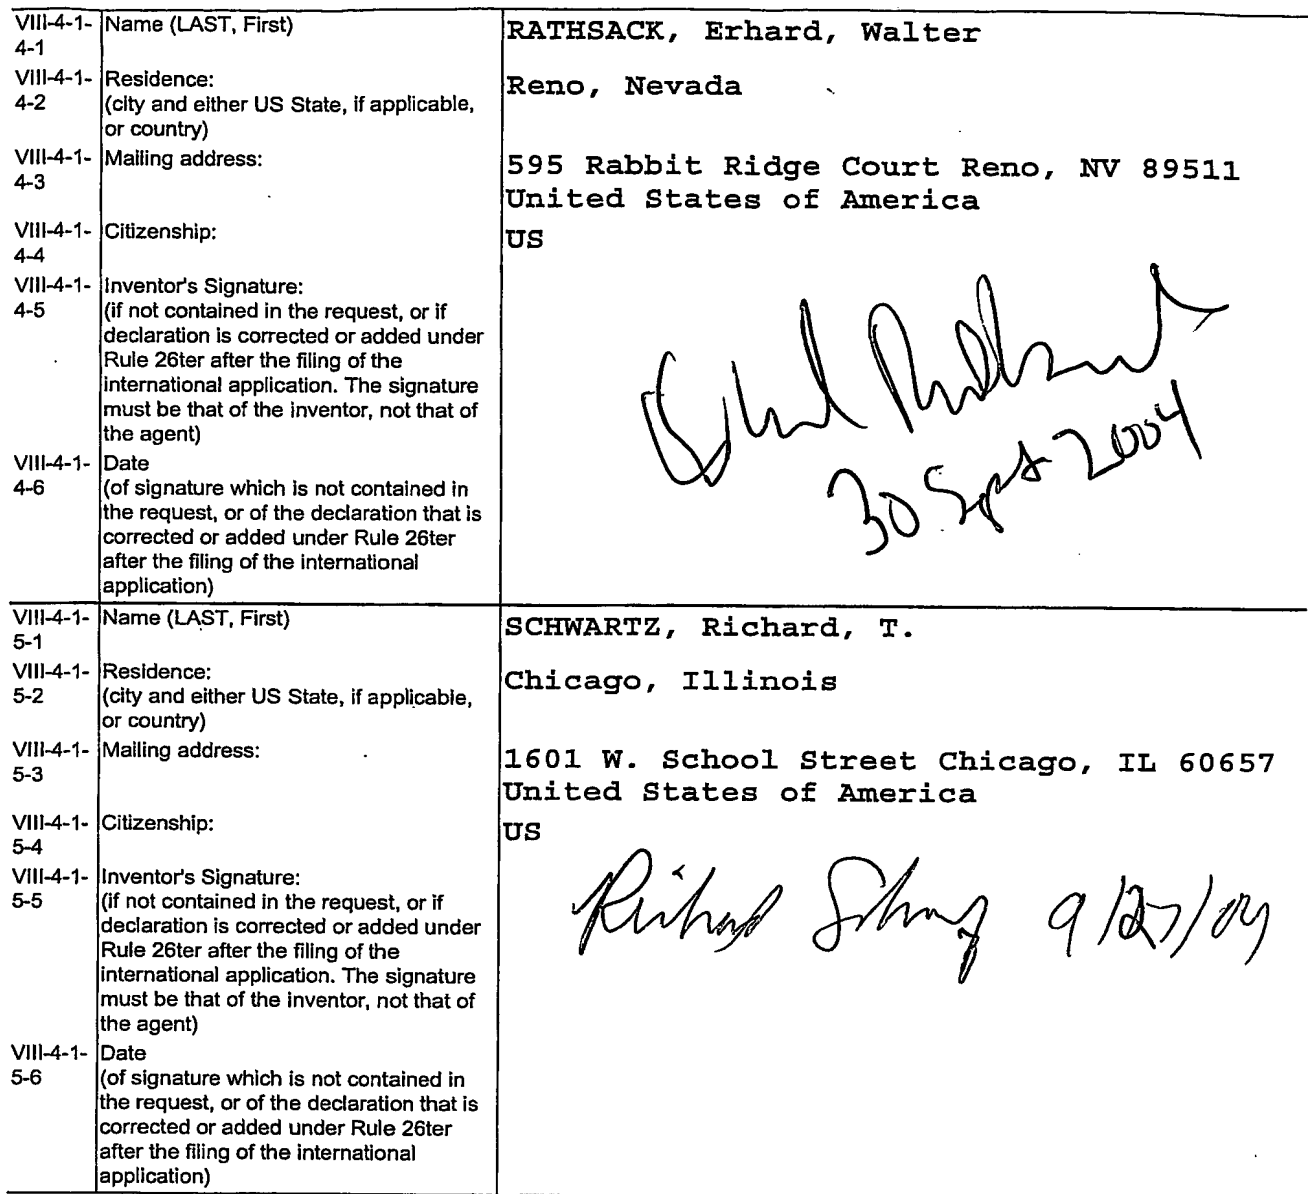 VIII-4-1-4-1 Name (LAST, First) RATHSACK, Erhard, Walter
VIII-4-1-4-2 Residence: Reno, Nevada
(city and either US State, if applicable,
or country)
VIII-4-1-4-3 Mailing address: 595 Rabbit Ridge Court Reno, NV 89511
United States of America
VIII-4-1-4-4 Citizenship: US
VIII-4-1-4-5 Inventor's Signature:
(if not contained in the request, or if
declaration is corrected or added under
Rule 26ter after the filing of the
international application. The signature
must be that of the inventor, not that of
the agent)
30 Sept 2004
VIII-4-1-4-6 Date
(of signature which is not contained in
the request, or of the declaration that is
corrected or added under Rule 26ter
after the filing of the international
application)
VIII-4-1-5-1 Name (LAST, First) SCHWARTZ, Richard, T.
VIII-4-1-5-2 Residence: Chicago, Illinois
(city and either US State, if applicable,
or country)
VIII-4-1-5-3 Mailing address: 1601 W. School Street Chicago, IL 60657
United States of America
VIII-4-1-5-4 Citizenship: US
VIII-4-1-5-5 Inventor's Signature: 9/27/04
(if not contained in the request, or if
declaration is corrected or added under
Rule 26ter after the filing of the
international application. The signature
must be that of the inventor, not that of
the agent)
VIII-4-1-5-6 Date
(of signature which is not contained in
the request, or of the declaration that is
corrected or added under Rule 26ter
after the filing of the international
application)